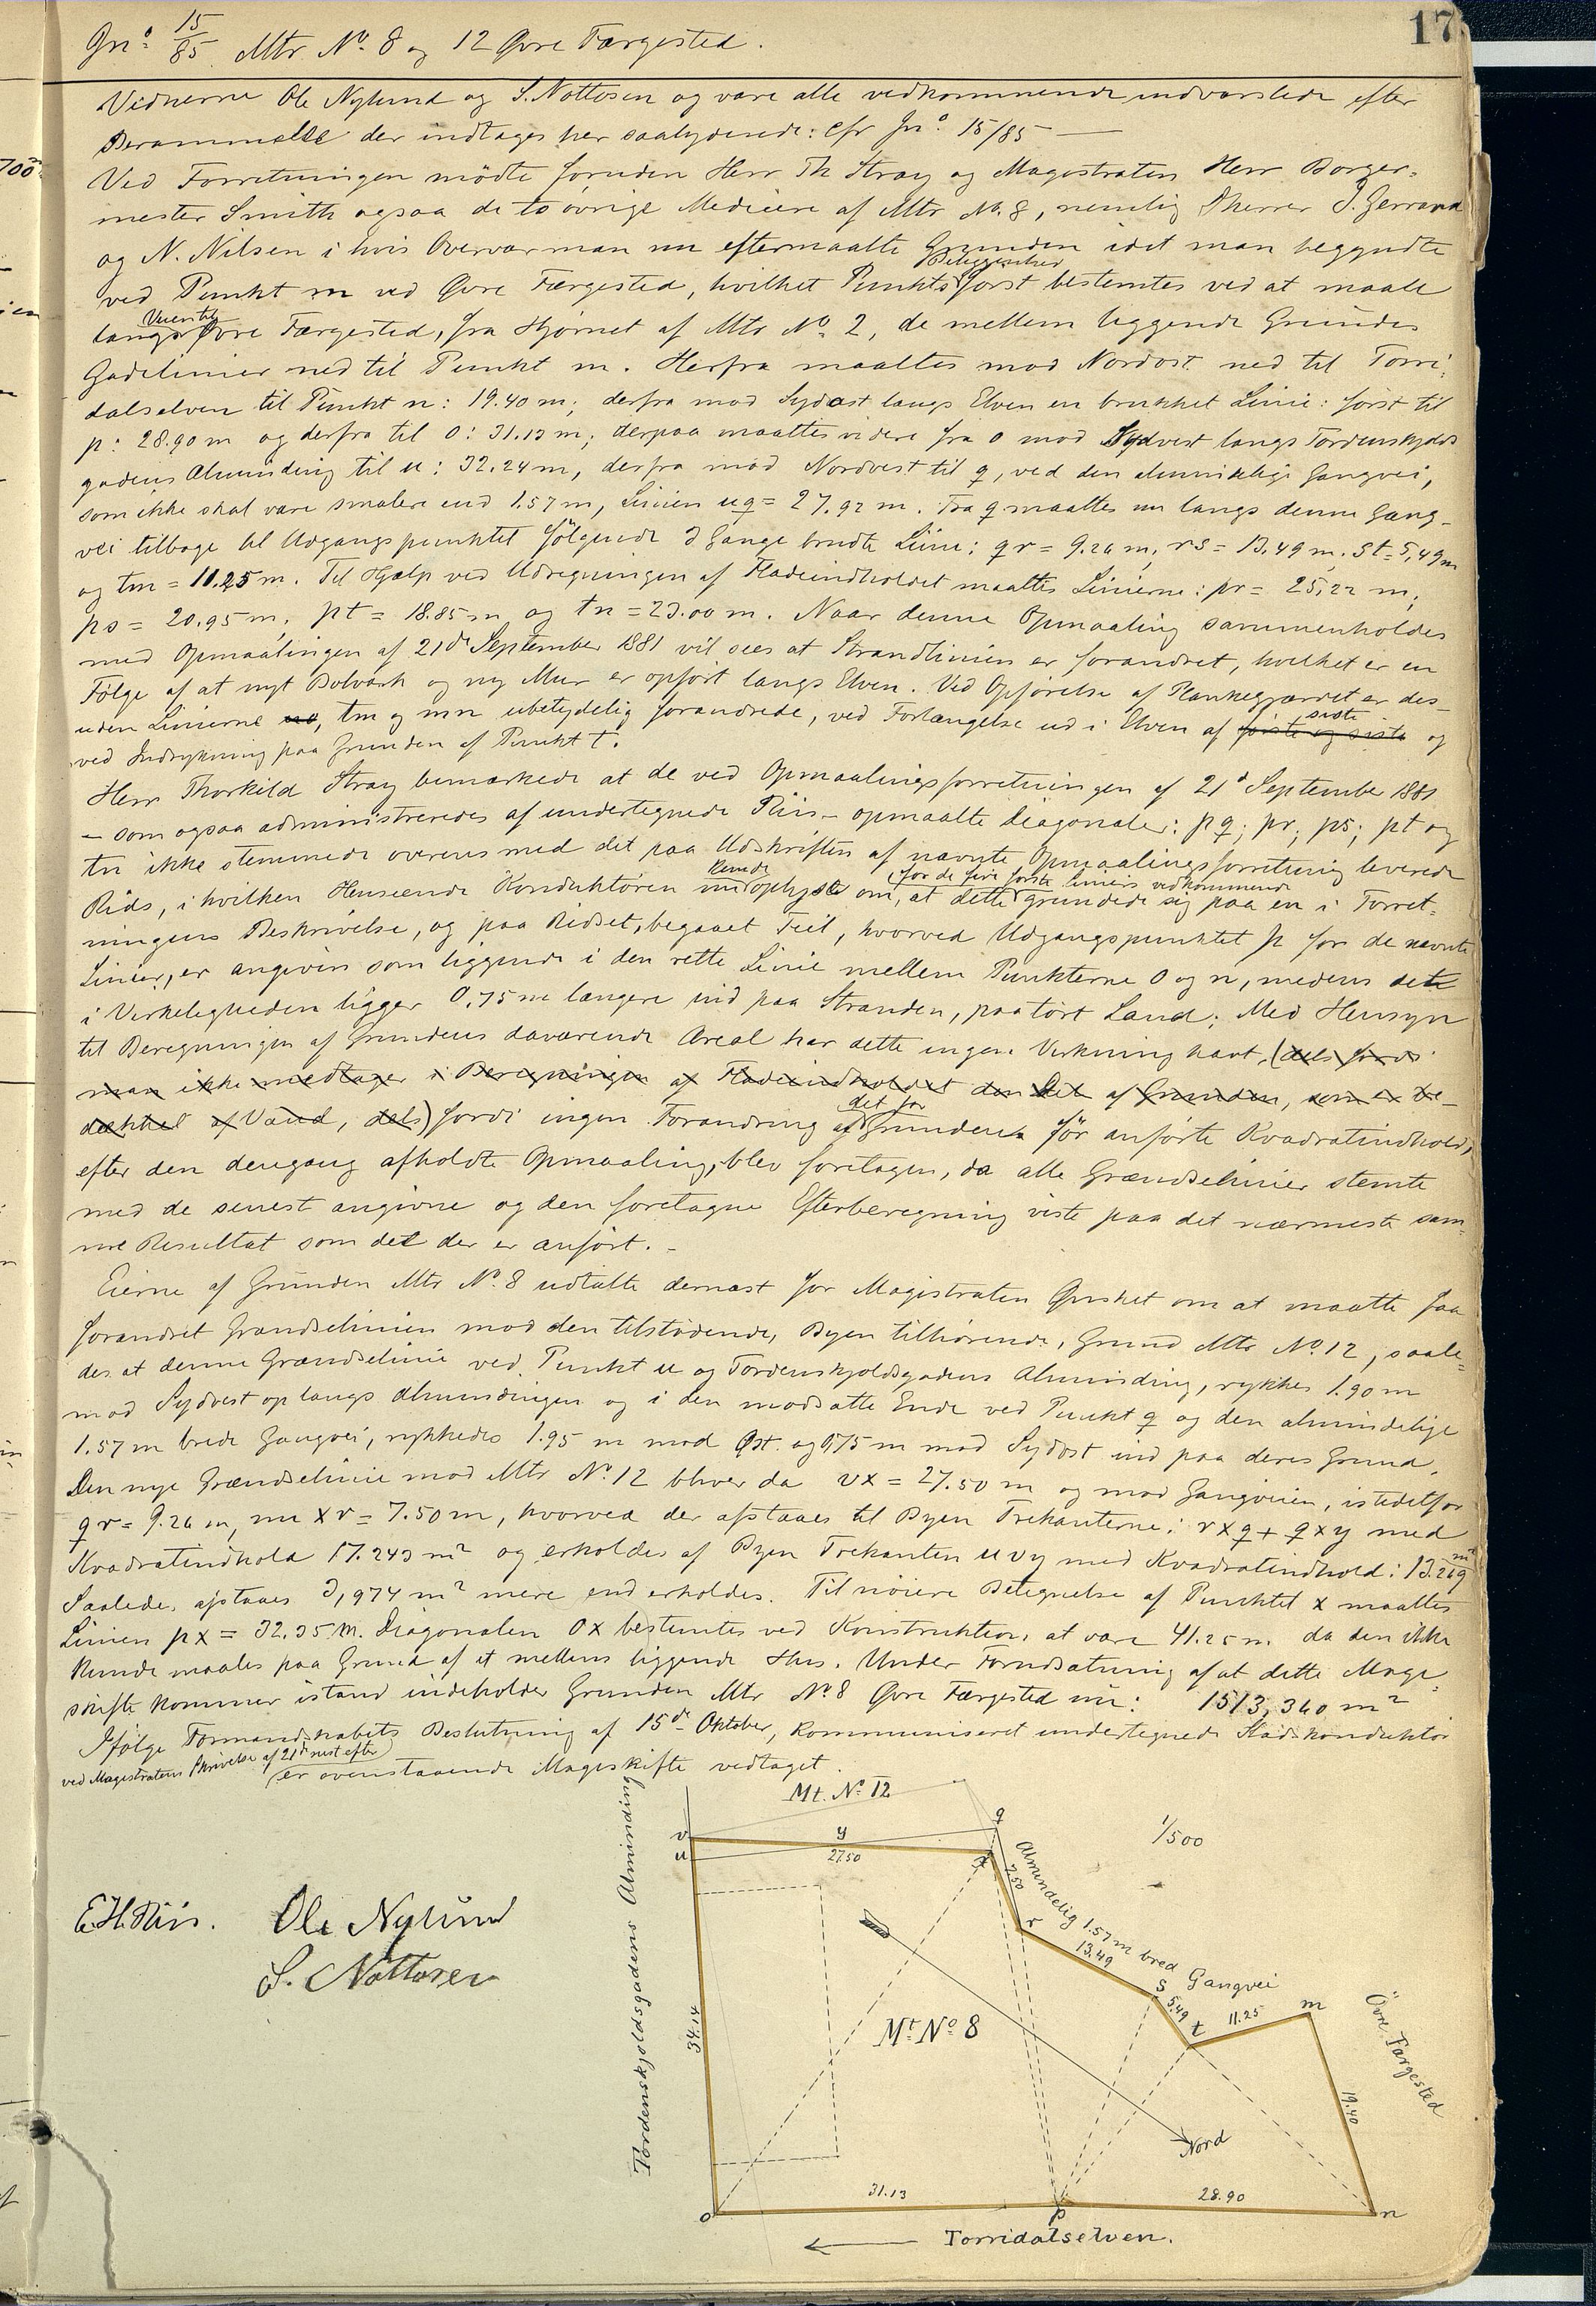 17
Jn° 15/85 Mtr. No. 8 og 12 Øvre Færgested.
Vidnerne Ole Nylund og S. Nottosen og vare alle vedkommende indvarslede efter
Berammelse der indtages her saalydende: cfr Jn° 15/85 —
Ved Forretningen mödte foruden Herr Th Stray og Magistraten Herr Borger=
mester Smith ogsaa de to øvrige Medeiere af Mtr No. 8, nemlig Herrer J. Gerrard
og N. Nilsen i hvis Overvær man nu eftermaalte Grunden idet man begyndte
ved Punkt m ved Øvre Færgested, hvilket Punkts Beliggenhed først bestemtes ved at maale
langs Veien til Øvre Færgested, fra Hjørnet af Mtr No. 2, de mellem liggende Grundes
Gadelinier ned til Punkt m. Herfra maaltes mod Nordost ned til Torri=
dalselven til Punkt n: 19.40 m; derfra mod Sydost langs Elven en brukket Linie: først til
p: 28.90 m og derfra til o: 31.13 m; derpaa maaltes videre fra o mod Sydvest langs Tordenskjolds
gadens Alminding til u: 32.24 m, derfra mod Nordvest til q, ved den almindelige Gangvei,
som ikke skal være smalere end 1.57 m, Linien uq = 27.92 m. Fra q maaltes nu langs denne Gang-
vei tilbage til Udgangspunktet følgende 3 Gange brudte Linie: qr = 9.26 m, rs = 13.49 m. st = 5,49 m
og tm = 11.25 m. Til Hjælp ved Udregningen af Fladeindholdet maaltes Linierne: pr = 25,22 m;
ps = 20.95 m, pt = 18.85 m og tn = 23.00 m. Naar denne Opmaaling sammenholdes
med Opmaalingen af 21de September 1881 vil sees at Strandlinien er forandret, hvilket er en
Følge af at nyt Bolværk og ny Mur er opført langs Elven. Ved Opførelse af Plankegjærdet er des-
uden Linierne uo, tm og mn ubetydelig forandrede, ved Forlængelse ud i Elven af første og sidste sidste og
ved Indrykning paa Grunden af Punkt t.
Herr Thorkild Stray bemærkede at de ved Opmaalingsforretningen af 21d September 1881
– som ogsaa administreredes af undertegnede Riis – opmaalte Diagonaler: pq; pr; ps; pt og
tn ikke stemmede overens med det paa Udskriften af nævnte Opmaalingsforretning leverede
Rids, i hvilken Henseende Konduktøren kunde oplyse om, at dette (for de fire første Liniers vedkommende) grundede sig paa en i Forret=
ningens Beskrivelse, og paa Ridset, begaaet Feil, hvorved Udgangspunktet p for de nævnte
Linier, er angiven som liggende i den rette Linie mellem Punkterne o og n, medens det
i Virkeligheden ligger 0.75 m længere ind paa Stranden, paa tørt Land; Med Hensyn
til Beregningen af Grundens daværende Areal har dette ingen Virkning havt, (dels fordi
man ikke medtager i Beregningen af Fladeindholdet den Del af Grunden, som er be-
dækket af Vand, dels) fordi ingen Forandring af det for Grunden før anførte Kvadratindhold,
efter den dengang afholdte Opmaaling, blev foretagen, da alle Grændselinier stemte
med de senest angivne og den foretagne Efterberegning viste paa det nærmeste sam=
me Resultat som det der er anført. –
Eierne af Grunden Mtr No. 8 udtalte dernæst for Magistraten Ønsket om at maatte faa
forandret Grændselinien mod den tilstødende, Byen tilhørende, Grund Mtr No. 12, saale=
des at denne Grændselinie ved Punkt u og Tordenskjoldsgadens Alminding, rykkes 1.90 m
mod Sydvest op langs Almindingen og i den modsatte Ende ved Punkt q og den almindelige
1.57 m brede Gangvei, rykkedes 1.95 m mod Øst og 0,75 m mod Sydost ind paa deres Grund.
Den nye Grændselinie mod Mtr No. 12 bliver da vx = 27.50 m og mod Gangveien, istedetfor
qr = 9.26 m, nu xr = 7.50 m, hvorved der afstaaes til Byen Trekanterne: rxq + qxy med
Kvadratindhold 17.243 m² og erholdes af Byen Trekanten uvy med Kvadratindhold: 13.269 m²
Saaledes afstaaes 3,974 m² mere end erholdes. Til nöiere Betegnelse af Punktet x maaltes
Linien px = 32.35 m. Diagonalen ox bestemtes ved Konstruktion, at være 41.25 m. da den ikke
kunde maales paa Grund af et mellem liggende Hus. Under Forudsætning af at dette Mage=
skifte kommer istand indeholder Grunden Mtr No. 8 Øvre Færgested nu: 1513,340 m²
Ifølge Formandskabets Beslutning af 15de Oktober, kommuniseret undertegnede Stadskonduktør
ved Magistratens Skrivelse af 21de næst efter
er ovenstaaende Mageskifte vedtaget.
E.H. Riis.
Ole Nylund
S. Nottosen
Mt. No. 12
1/500
v
u
y
27.50
q
x
7.50
r
Almindelig 1.57 m bred Gangvei
13.49
s
5.49
t
11.25
m
Øvre Færgested
19.40
Tordenskjoldsgadens Alminding
34.14
Mt. No. 8
Nord
o
31.13
p
28.90
n
Torridalselven.